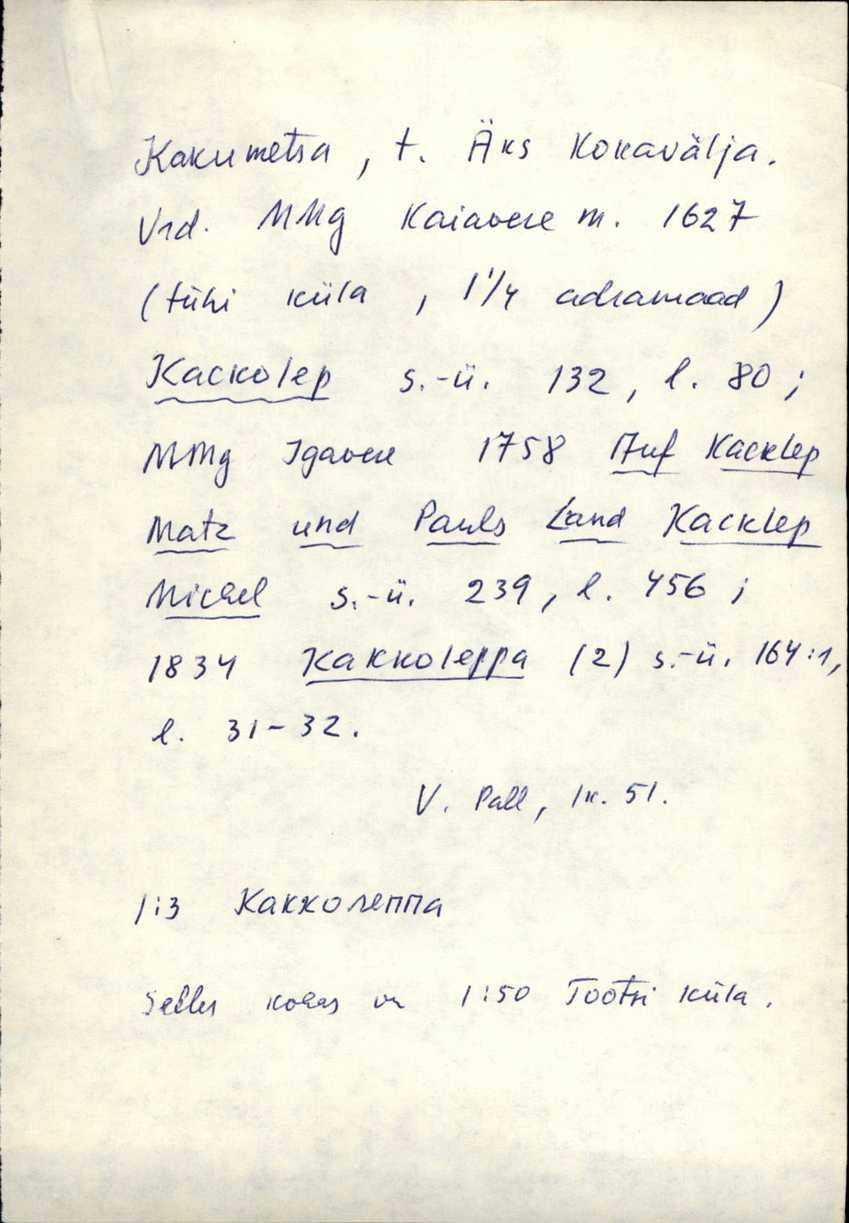 Kakumetsa, t. Äks Kokavälja.
Vrd. MMg Kaiavere m. 1627
(tühi küla, 1 1/4 adramaad)
Kackolep s.-ü. 132, l. 80;
MMg Igavere 1758 Auf Kacklep
Matz und Pauls Land Kacklep
Michel s.-ü. 239, l. 456;
1834 Kakkoleppa (2) s.-ü. 164:1,
l. 31-32.
V. Pall, lk. 51.
1:3 Какколеппа
Selles kohas on 1:50 Tootsi küla.